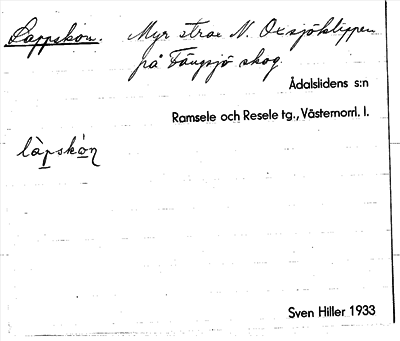 Lappskon. Myr strax N. Oxsjöklippen
på Tängsjö skog.
Ådalslidens s:n
Ramsele och Resele tg., Västernorrl. l.
Sven Hiller 1933